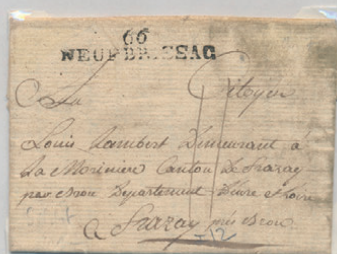 66
NEUFBRISSAC
Au Citoyen
Louis Lambert Demeurant à
La Morinière Canton de Frazay
par Brou Département d'Eure et Loire
a Frazay près Brou